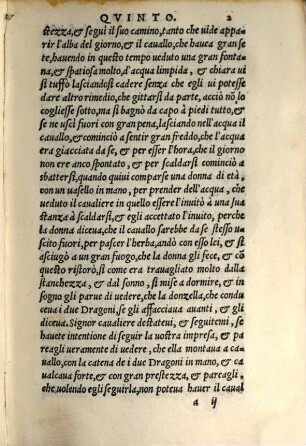 QVINTO. 2
ſtezza, & ſeguì il ſuo camino, tanto che uide appa
rir l'alba del giorno, & il cauallo, che hauea gran ſe
te, hauendo in queſto tempo ueduto una gran fonta
na, & ſpatioſa molto, d'acqua limpida, & chiara ui
ſi tuffò laſciandoſi cadere ſenza che egli ui poteſſe
dare altro rimedio, che gittarſi da parte, acciò nõ lo
coglieſſe ſotto, ma ſi bagnò da capo à piedi tutto, &
ſe ne uſcì fuori con gran pena, laſciando nell'acqua il
cauallo, & cominciò a ſentir gran freddo, che l'acqua
era giacciata da ſe, & per eſſer l'hora, che il giorno
non ere anco ſpontato, & per ſcaldarſi cominciò a
sbatterſi, quando quiui comparſe una donna di età,
con un uaſello in mano, per prender dell'acqua, che
ueduto il caualiere in quello eſſere l'inuitò à una ſua
ſtanza à ſcaldarſi, & egli accettato l'inuito, perche
la donna diceua, che il cauallo ſarebbe da ſe ſteſſo u
ſcito fuori, per paſcer l'herba, andò con eſſo lei, & ſi
aſciugò a un gran fuogo, che la donna gli fece, & cõ
queſto riſtorò, ſi come era trauagliato molto dalla
ſtanchezza, & dal ſonno, ſi miſe a dormire, & in
ſogno gli parue di uedere, che la donzella, che condu
ceua i due Dragoni, ſe gli affacciaua auanti, & gli
diceua. Signor caualiere deſtateui, & ſeguitemi, ſe
hauete intentione di ſeguir la uoſtra impreſa, & pa
reagli ueramente di uedere, che ella montaua a ca-
uallo, con la catena de i due Dragoni in mano, & ca
ualcaua forte, & con gran preſtezza, & pareagli,
che uolendo egli ſeguirla, non poteua hauer il caual
a ij